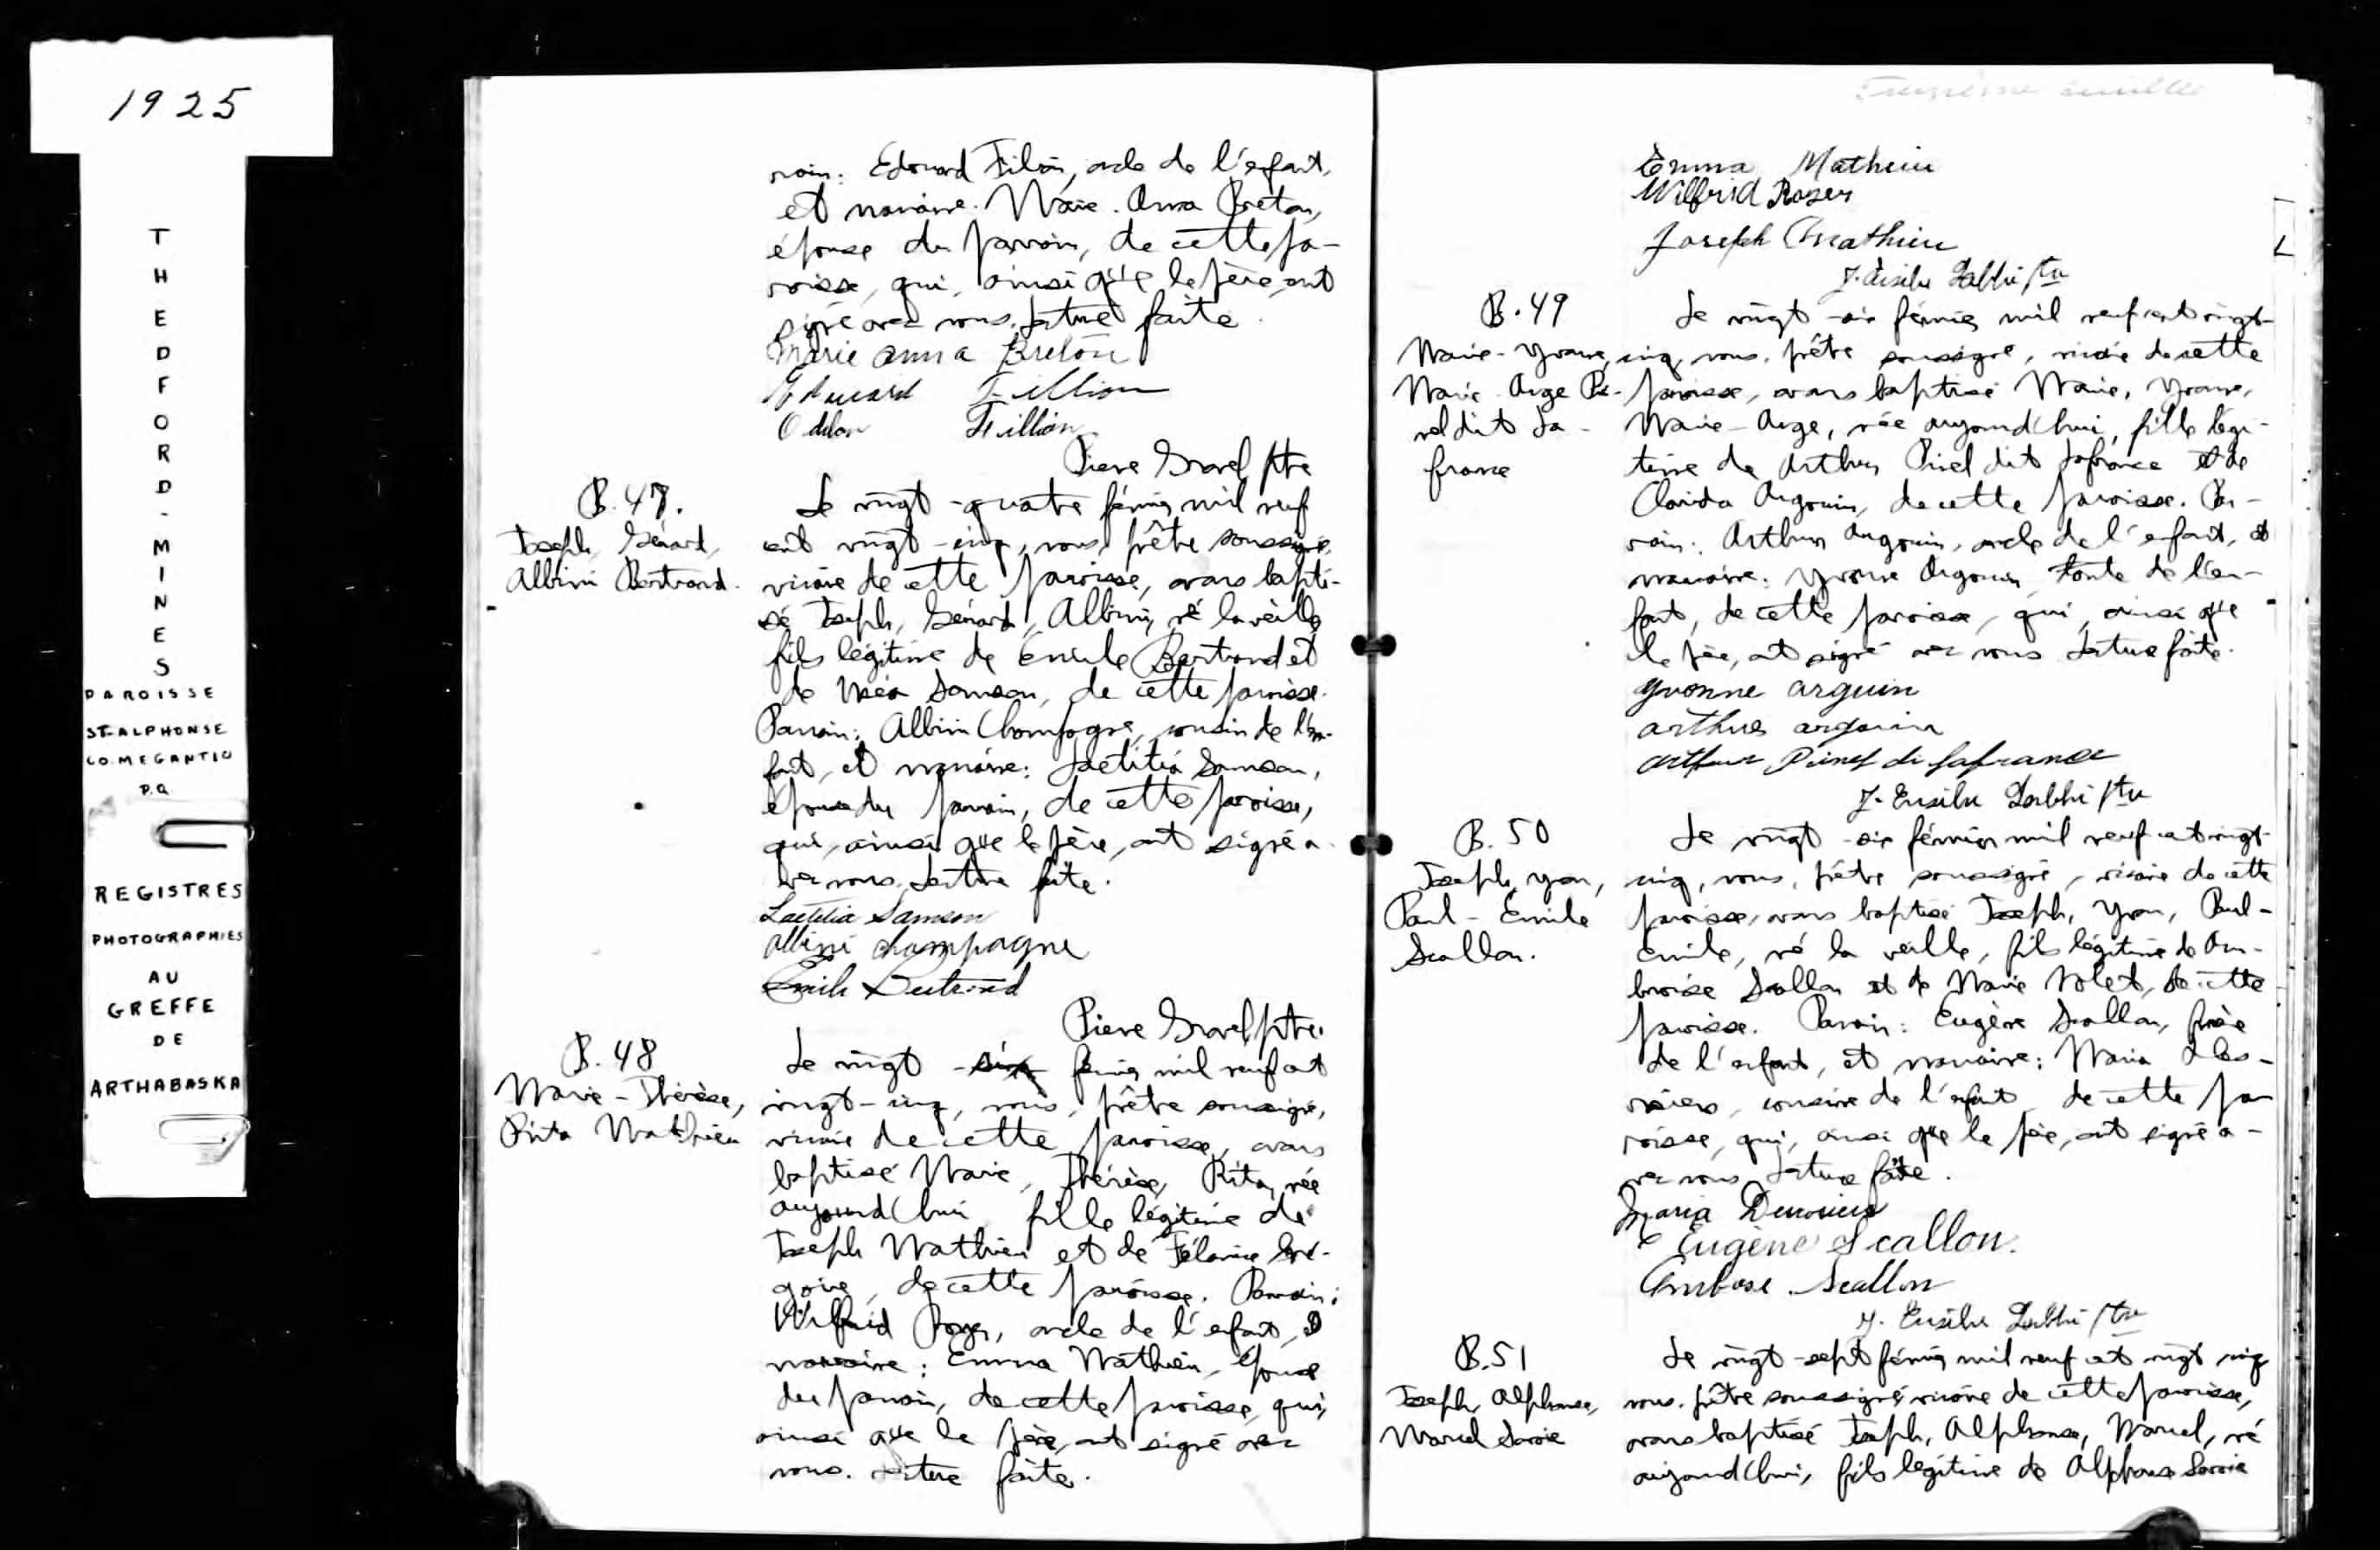 1925
THEDFORD-MINES
PAROISSE
ST-ALPHONSE
CO. MEGANTIC
P.Q.
REGISTRES
PHOTOGRAPHIES
AU
GREFFE
DE
ARTHABASKA
rain: Edouard Filion, oncle de l'enfant,
et marraine: Marie-Anna Breton,
épouse du parrain, de cette pa-
roisse, qui, ainsi que le père, ont
signé avec nous. Lecture faite.
Marie Anna Breton
Edouard Fillion
Odilon Fillion
Pierre Gravel ptre
B. 47.
Joseph, Gérard,
Albini Bertrand.
Le vingt-quatre février mil neuf
cent vingt-cinq, nous, prêtre soussigné,
vicaire de cette paroisse, avons bapti-
sé Joseph, Gérard, Albini, né la veille,
fils légitime de Emile Bertrand et
de Méa Samson, de cette paroisse.
Parrain: Albini Champagne, cousin de l'en-
fant, et marraine: Laetitia Samson,
épouse du parrain, de cette paroisse,
qui, ainsi que le père, ont signé a-
vec nous. Lecture faite.
Laetitia Samson
Albini Champagne
Emile Bertrand
Pierre Gravel, ptre.
B. 48
Marie-Thérèse,
Rita Mathieu
Le vingt-six février mil neuf cent
vingt-cinq, nous, prêtre soussigné,
vicaire de cette paroisse, avons
baptisé Marie, Thérèse, Rita, née
aujourd'hui fille légitime de
Joseph Mathieu et de Gré-
goire, de cette paroisse. Parrain:
Wilfrid Roger, oncle de l'enfant, et
marraine: Emma Mathieu, épouse
du parrain, de cette paroisse, qui,
ainsi que le père, ont signé avec
nous. Lecture faite.
Emma Mathieu
Wilfrid Roger
Joseph Mathieu
J. ptre
B. 49
Marie-Yvonne,
Marie-Ange Pi-
nel dit La-
france
Le vingt-six février mil neuf cent vingt-
cinq, nous, prêtre soussigné, vicaire de cette
paroisse, avons baptisé Marie, Yvonne,
Marie-Ange, née aujourd'hui, fille légi-
time de Arthur Pinel dit Lafrance et de
Clorida Argouin, de cette paroisse. Par-
rain: Arthur Argouin, oncle de l'enfant, et
marraine: Yvonne Argouin, tante de l'en-
fant, de cette paroisse, qui, ainsi que
le père, ont signé avec nous. Lecture faite.
Yvonne arguin
arthur argouin
Arthur Pinel di lafrance
J. ptre
B. 50
Joseph, Yvon,
Paul-Emile
Scallon.
Le vingt-six février mil neuf cent vingt-
cinq, nous, prêtre soussigné, vicaire de cette
paroisse, avons baptisé Joseph, Yvon, Paul-
Emile, né la veille, fils légitime de Am-
broise Scallon et de Marie Nolet, de cette
paroisse. Parrain: Eugène Scallon, frère
de l'enfant, et marraine: Maria
cousine de l'enfant, de cette pa-
roisse, qui, ainsi que le père, ont signé a-
vec nous. Lecture faite.
Maria
Eugène Scallon.
Ambose Scallon
J. ptre
B. 51
Joseph, Alphonse,
Marcel Savoie
Le vingt-sept février mil neuf cent vingt cinq
nous, prêtre soussigné, vicaire de cette paroisse,
avons baptisé Joseph, Alphonse, Marcel, né
aujourd'hui, fils légitime de Alphonse Savoie